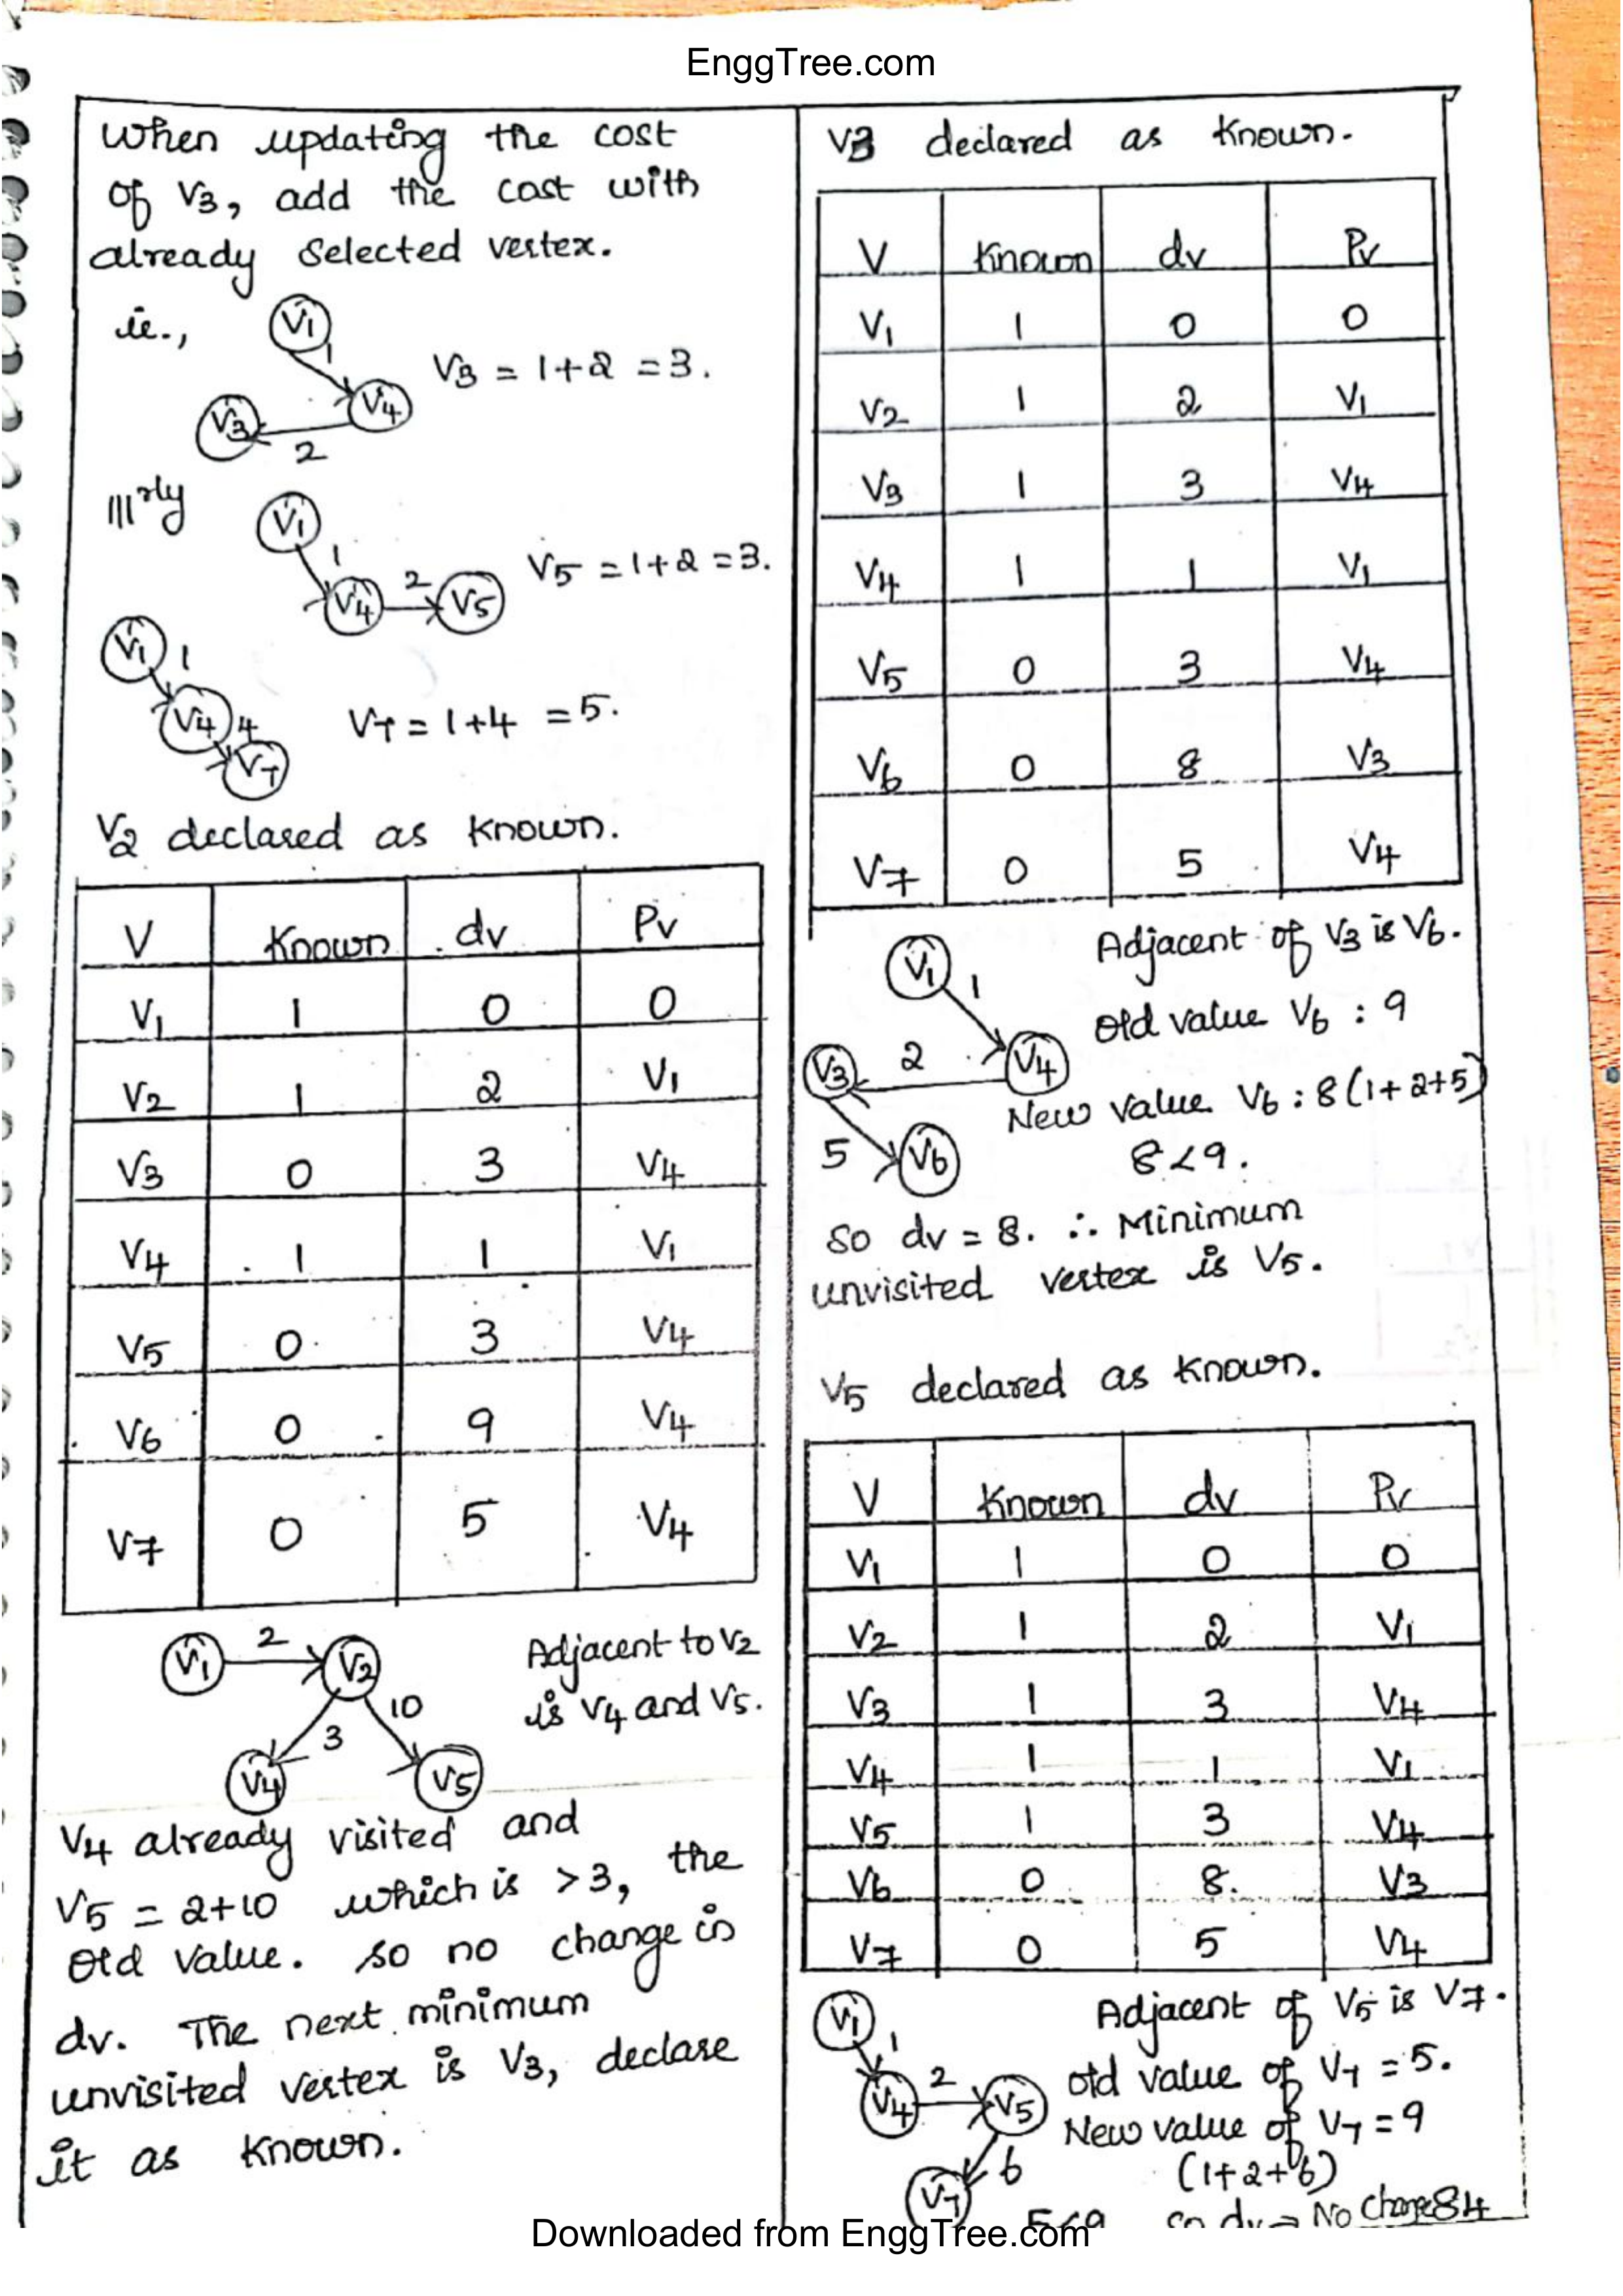 EnggTree.com
When updating the cost
of V3, add the cost with
already selected vertex.
ie.,
V1
1
V3 = 1+2 = 3.
V4
V3
2
|||rly
V1
1
V5 = 1+2 = 3.
2
V4
V5
V1
1
V4
4
V7 = 1+4 = 5.
V7
V2 declared as known.
V Known dv Pv
V1 1 0 0
V2 1 2 V1
V3 0 3 V4
V4 1 1 V1
V5 0 3 V4
V6 0 9 V4
V7 0 5 V4
V1
2
V2
10
3
V4
V5
Adjacent to V2
is V4 and V5.
V4 already visited and
V5 = 2+10 which is >3, the
old value. so no change in
dv. The next minimum
unvisited vertex is V3, declare
it as known.
V3 declared as known.
V Known dv Pv
V1 1 0 0
V2 1 2 V1
V3 1 3 V4
V4 1 1 V1
V5 0 3 V4
V6 0 8 V3
V7 0 5 V4
Adjacent of V3 is V6.
V1
1
old value V6 : 9
V3
2
V4
New value V6 : 8 (1+2+5)
5
V6
8<9.
so dv = 8. ∴ Minimum
unvisited vertex is V5.
V5 declared as known.
V Known dv Pv
V1 1 0 0
V2 1 2 V1
V3 1 3 V4
V4 1 1 V1
V5 1 3 V4
V6 0 8. V3
V7 0 5 V4
Adjacent of V5 is V7.
V1
1
old value of V7 = 5.
V4
2
V5
New value of V7 = 9
(1+2+6)
6
V7
5<9 so dv = No change
84
Downloaded from EnggTree.com